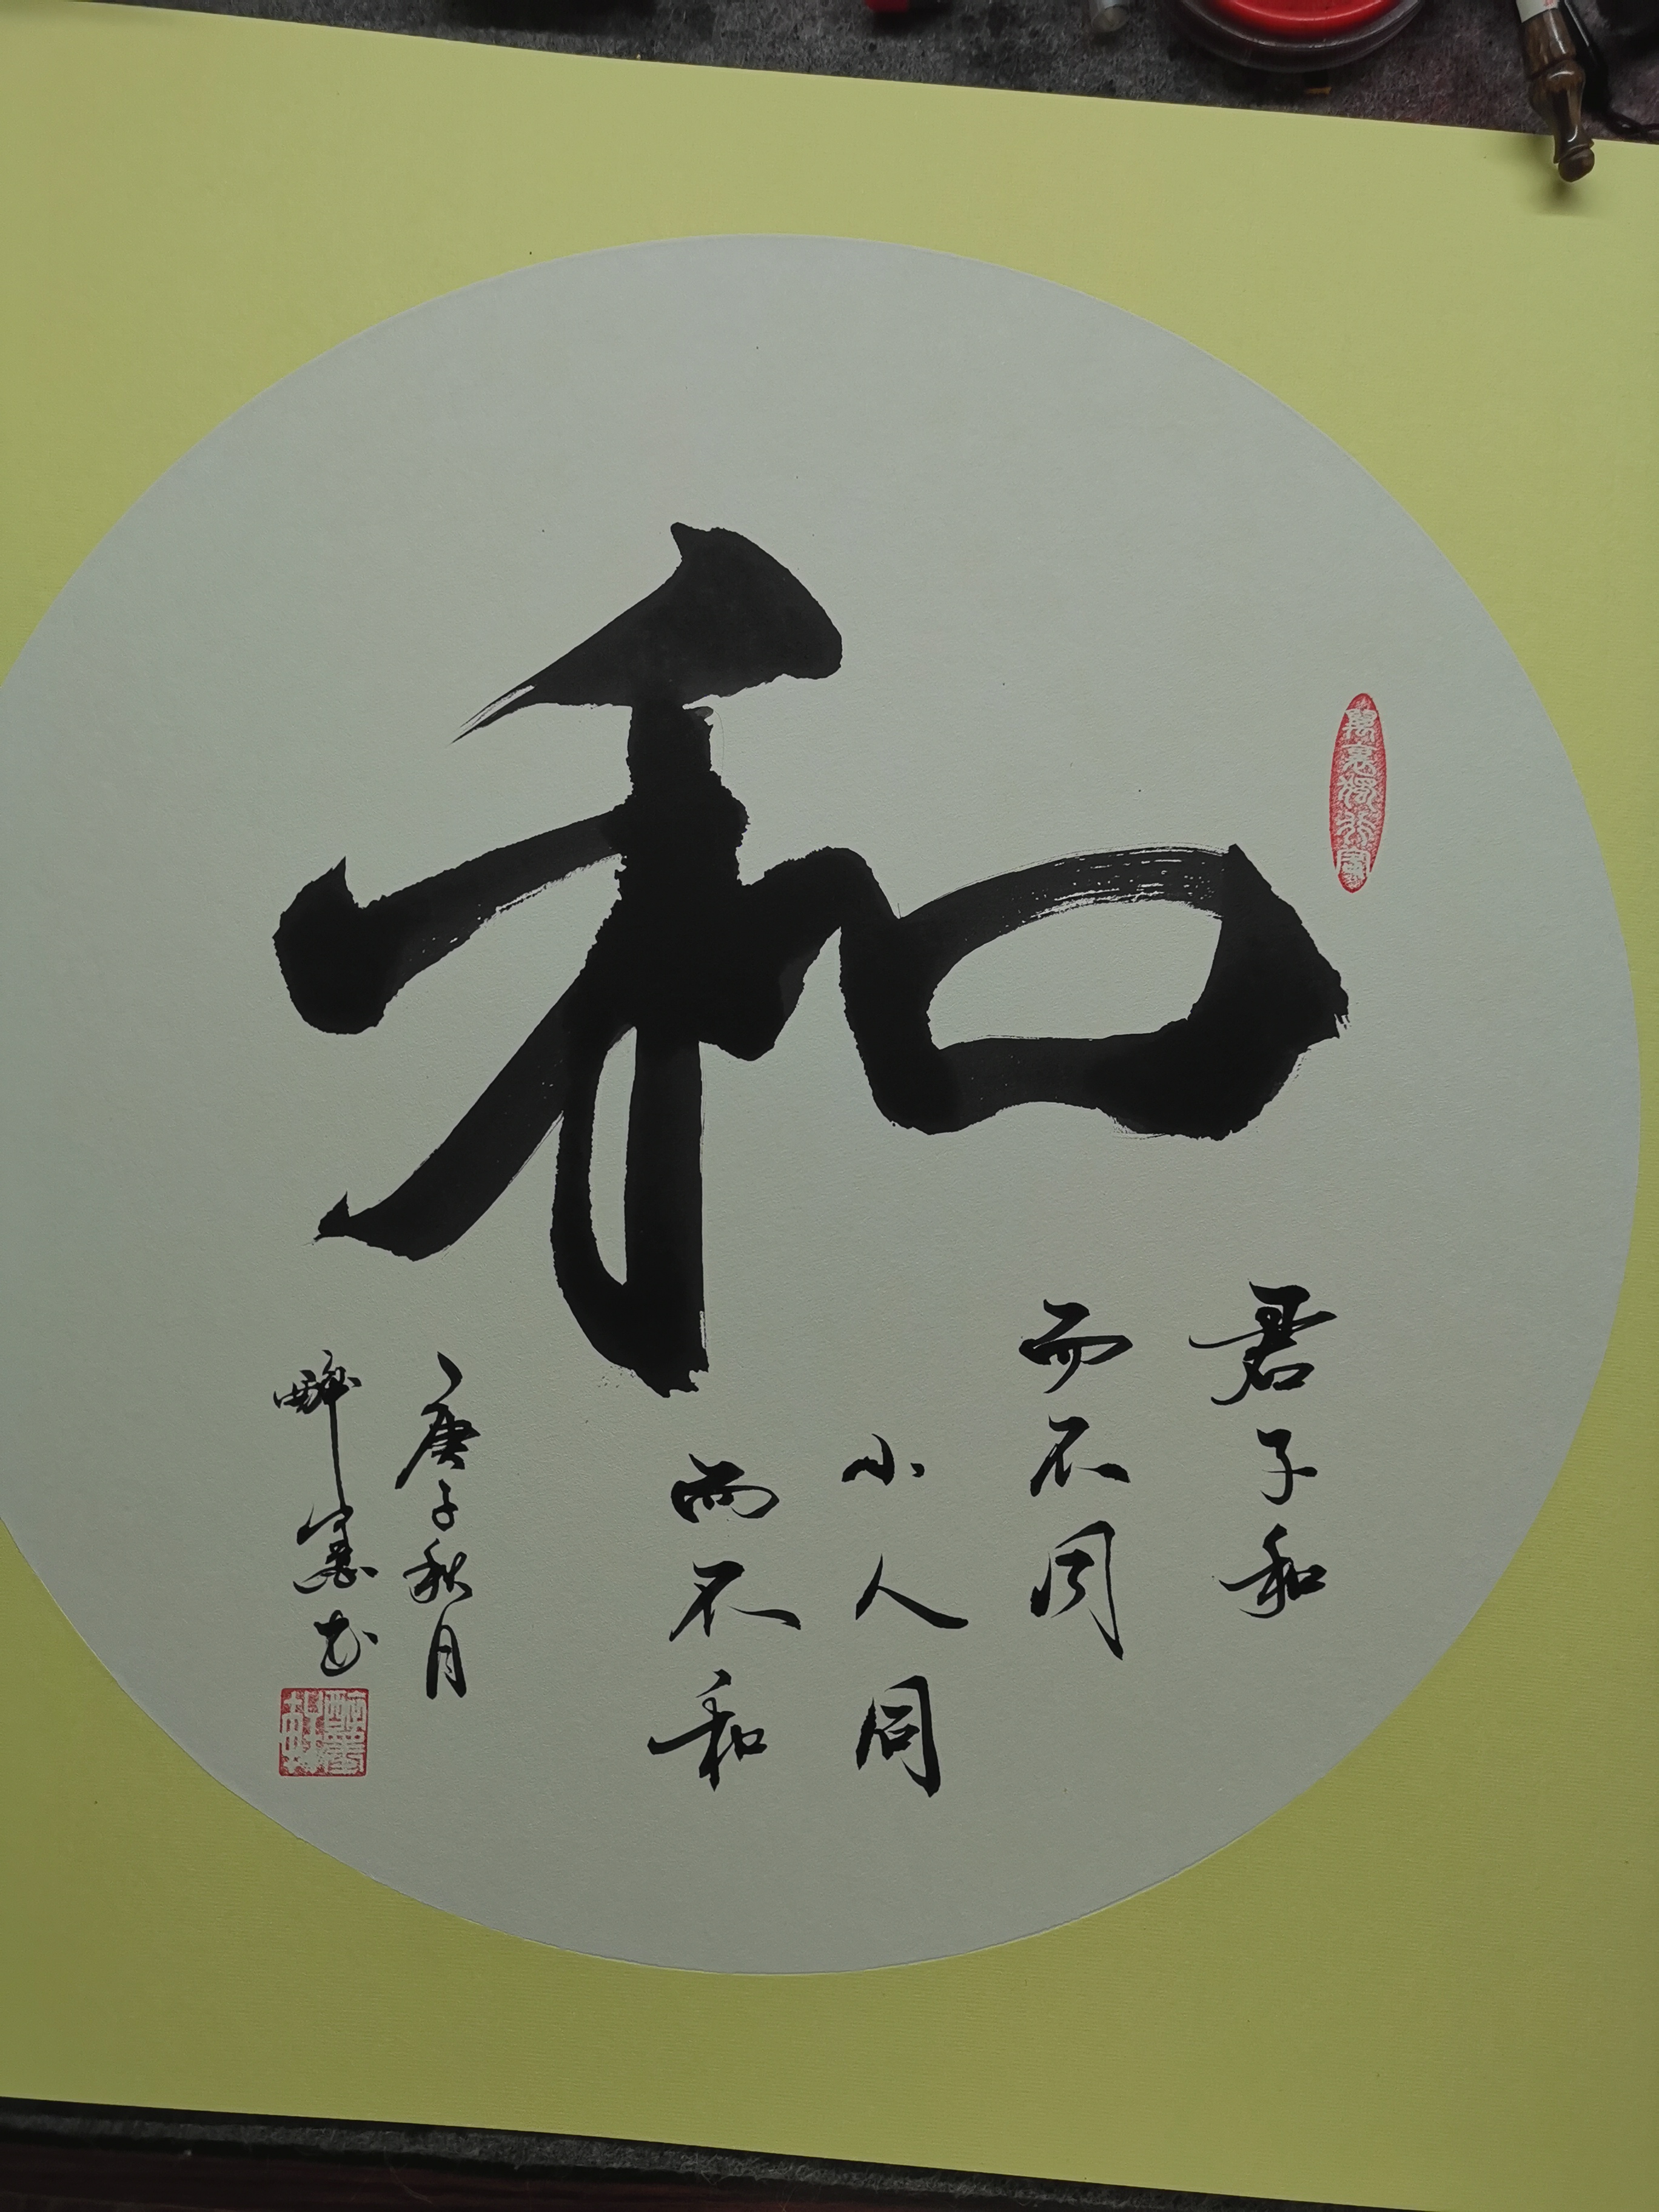 和
君子和
而不同
小人同
而不和
庚子秋月
醉墨書